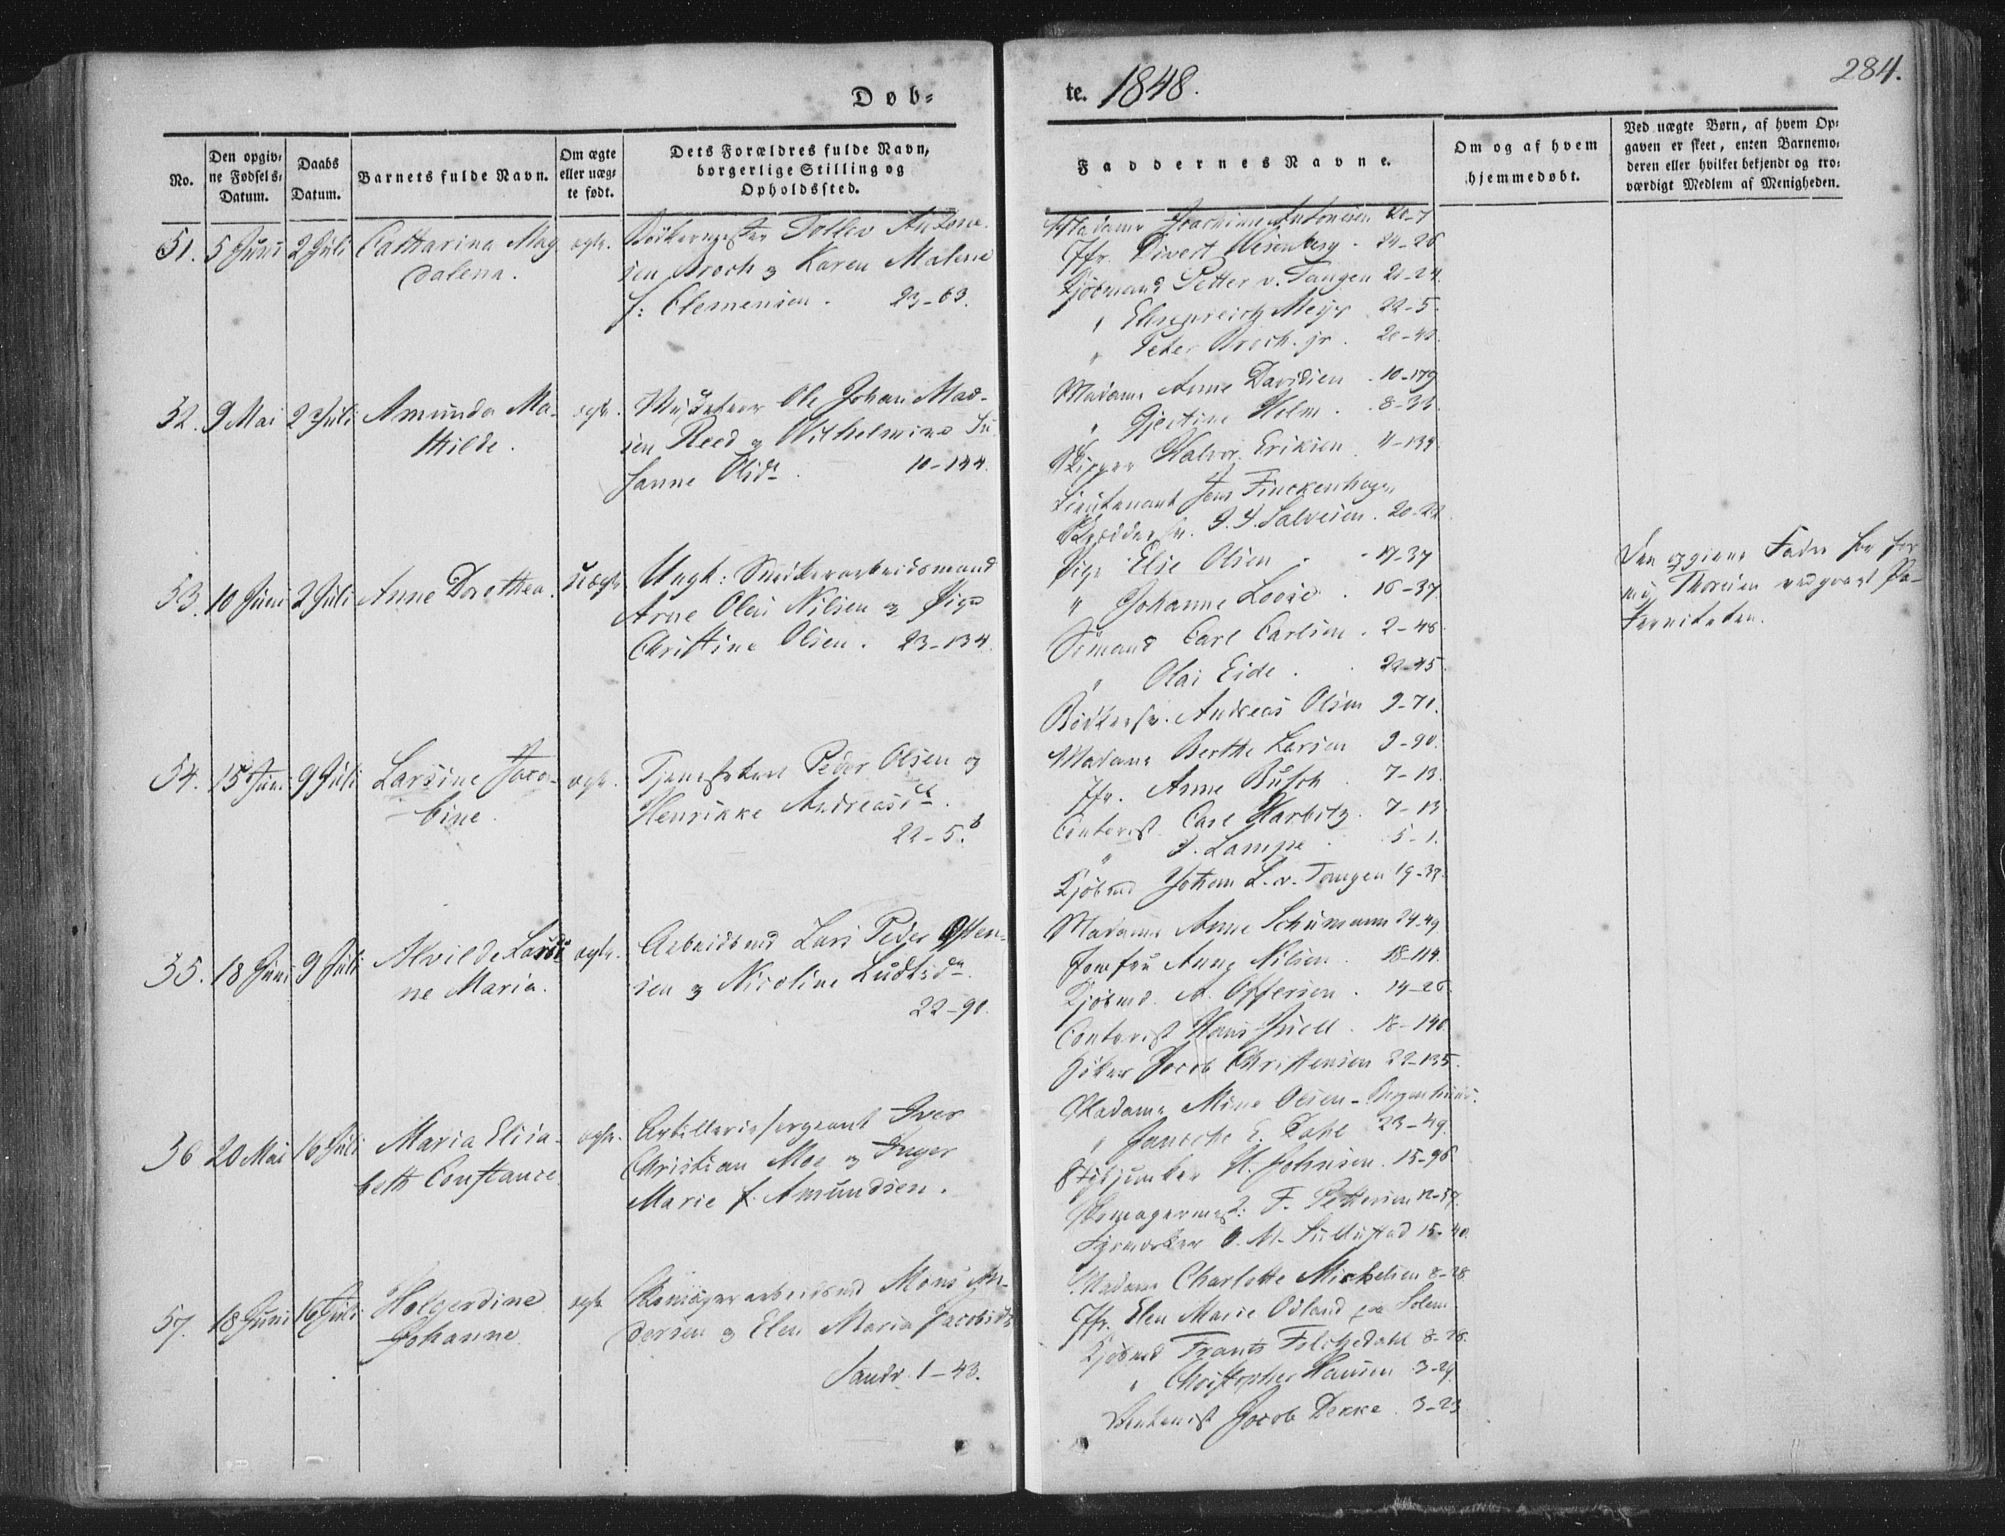 Døb-
te. 1848.
284.
No.
Den opgiv-
ne Fødsels-
Datum.
Daabs
Datum.
Barnets fulde Navn.
Om ægte
eller uæg-
te født.
Dets Forældres fulde Navn,
borgerlige Stilling og
Opholdssted.
Faddernes Navne.
Om og af hvem
hjemmedøbt.
Ved uægte Børn, af hvem Op-
gaven er skeet, enten Barnemo-
deren eller hvilket bekjendt og tro-
værdigt Medlem af Menigheden.
51. 5 Juni 2 Juli Catharina Mag
dalena.
ægte.
Bødkermester Tollev Antone
sen Broch og Karen Malene
f: Clemensen. 23-63.
Madame Joachime Antonisen
Jfr. Divert Wesenberg. 24-26
Kjøbmand Petter v. Tangen 20-24.
Meyer 22-5.
" Peter Broch jr. 20-43.
52. 9 Mai 2 Juli Amunda Ma-
thilde.
ægte.
Ole Johan Mad-
sen Reed og Wilhelmine Su
sanne Olsdr. 10-144.
Madame Anne Davidsen. 10-179
" Gjertine Holm. 8-36.
Skipper Halvor Eriksen. 11-139.
Lieutenant Jens Finckenhagen
Salvesen. 20-22.
53. 10 Juni 2 Juli Anne Dorothea.
uægte
Ungk: Snedkerarbeidsmand
Arne Olai Nilsen og Pige
Christine Olsen. 23-134.
Pige Elie Olsen. 17-37
" Johanne Loose. 16-37
Sømand Carl Carlsen. 2-48.
" Olai Eide. 22-45.
Bødkersv. Andreas Olsen 9-71.
Den opgivne Fader har for
mig Thoresen vedgaaet Pa-
terniteten.
54. 15 Juni 9 Juli Larsine Jaco-
bine.
ægte.
Tjenestekarl Peder Olsen og
Henrikke Andreasdr.
22-5.b
Madame Berthe Larsen 9-90.
Jfr. Anne Busch. 7-13.
Contorist Carl Harbitz. 7-13
" J. Lampe. 5-1.
Kjøbmd Johan L. v. Tangen 19-32.
55. 18 Juni 9 Juli Alvilde Lardi
ne Maria.
ægte.
Arbeidsmd Lars Peder Osten-
sen og Nicoline Ludtsdr.
22-90.
Madame Anne Schumann 24-49
Jomfru Anne Nilsen. 18-114.
Kjøbmd. A. Offersen. 14-26.
Contorist Hans Juell. 18-140.
Høker Jacob Christensen 22-135.
56 20 Mai 16 Juli Maria Elisa-
beth Constance.
ægte.
Artillerie sergeant Iver
Christian Moe og Inger
Marie f. Amundsen.
Madame Mine Olsen - Bergenhuus.
" Janeche E. Dahl 23-49.
Stykjunker N. Johnsen. 15-96.
Skomagermest: F. Pettersen 12-57.
15-40.
57. 18 Juni 16 Juli Holgerdine
Johanne
ægte
Skomagerarbeidsmd Mons An-
dersen og Elen Maria Jacobsdr
Sandv. 1-43.
Madam Charlotte Michelsen 8-28
Jfr. Elen Marie Odland fra Solem.
Kjøbmd Frants Feltzedahl 8-28.
" Christopher Hansen 3-29.
Contorist Jacob Dekke. 3-23